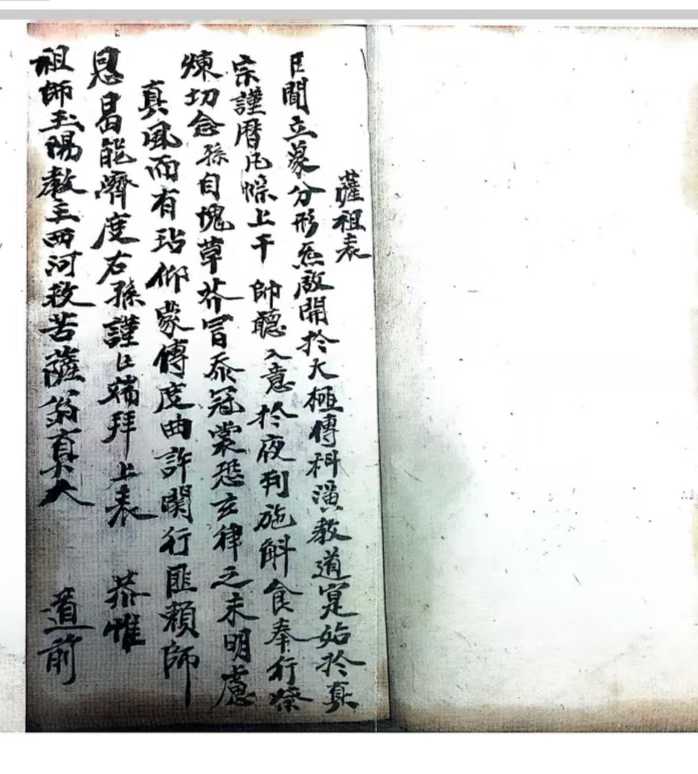 薩祖表
臣聞立蒙分形炁啟開於大極傳科演教道寔始於真
宗謹曆凡悰上干 師聽入意於夜判施斛食奉行祭
煉切念孫自塊草芥冒忝冠裳恐玄律之未明慮
真風而有玷仰蒙傳度曲許関行匪頼師
恩曷能濟度右孫謹臣端拜上表 恭惟
祖師玉陽教主西河救苦薩翁真人 道前